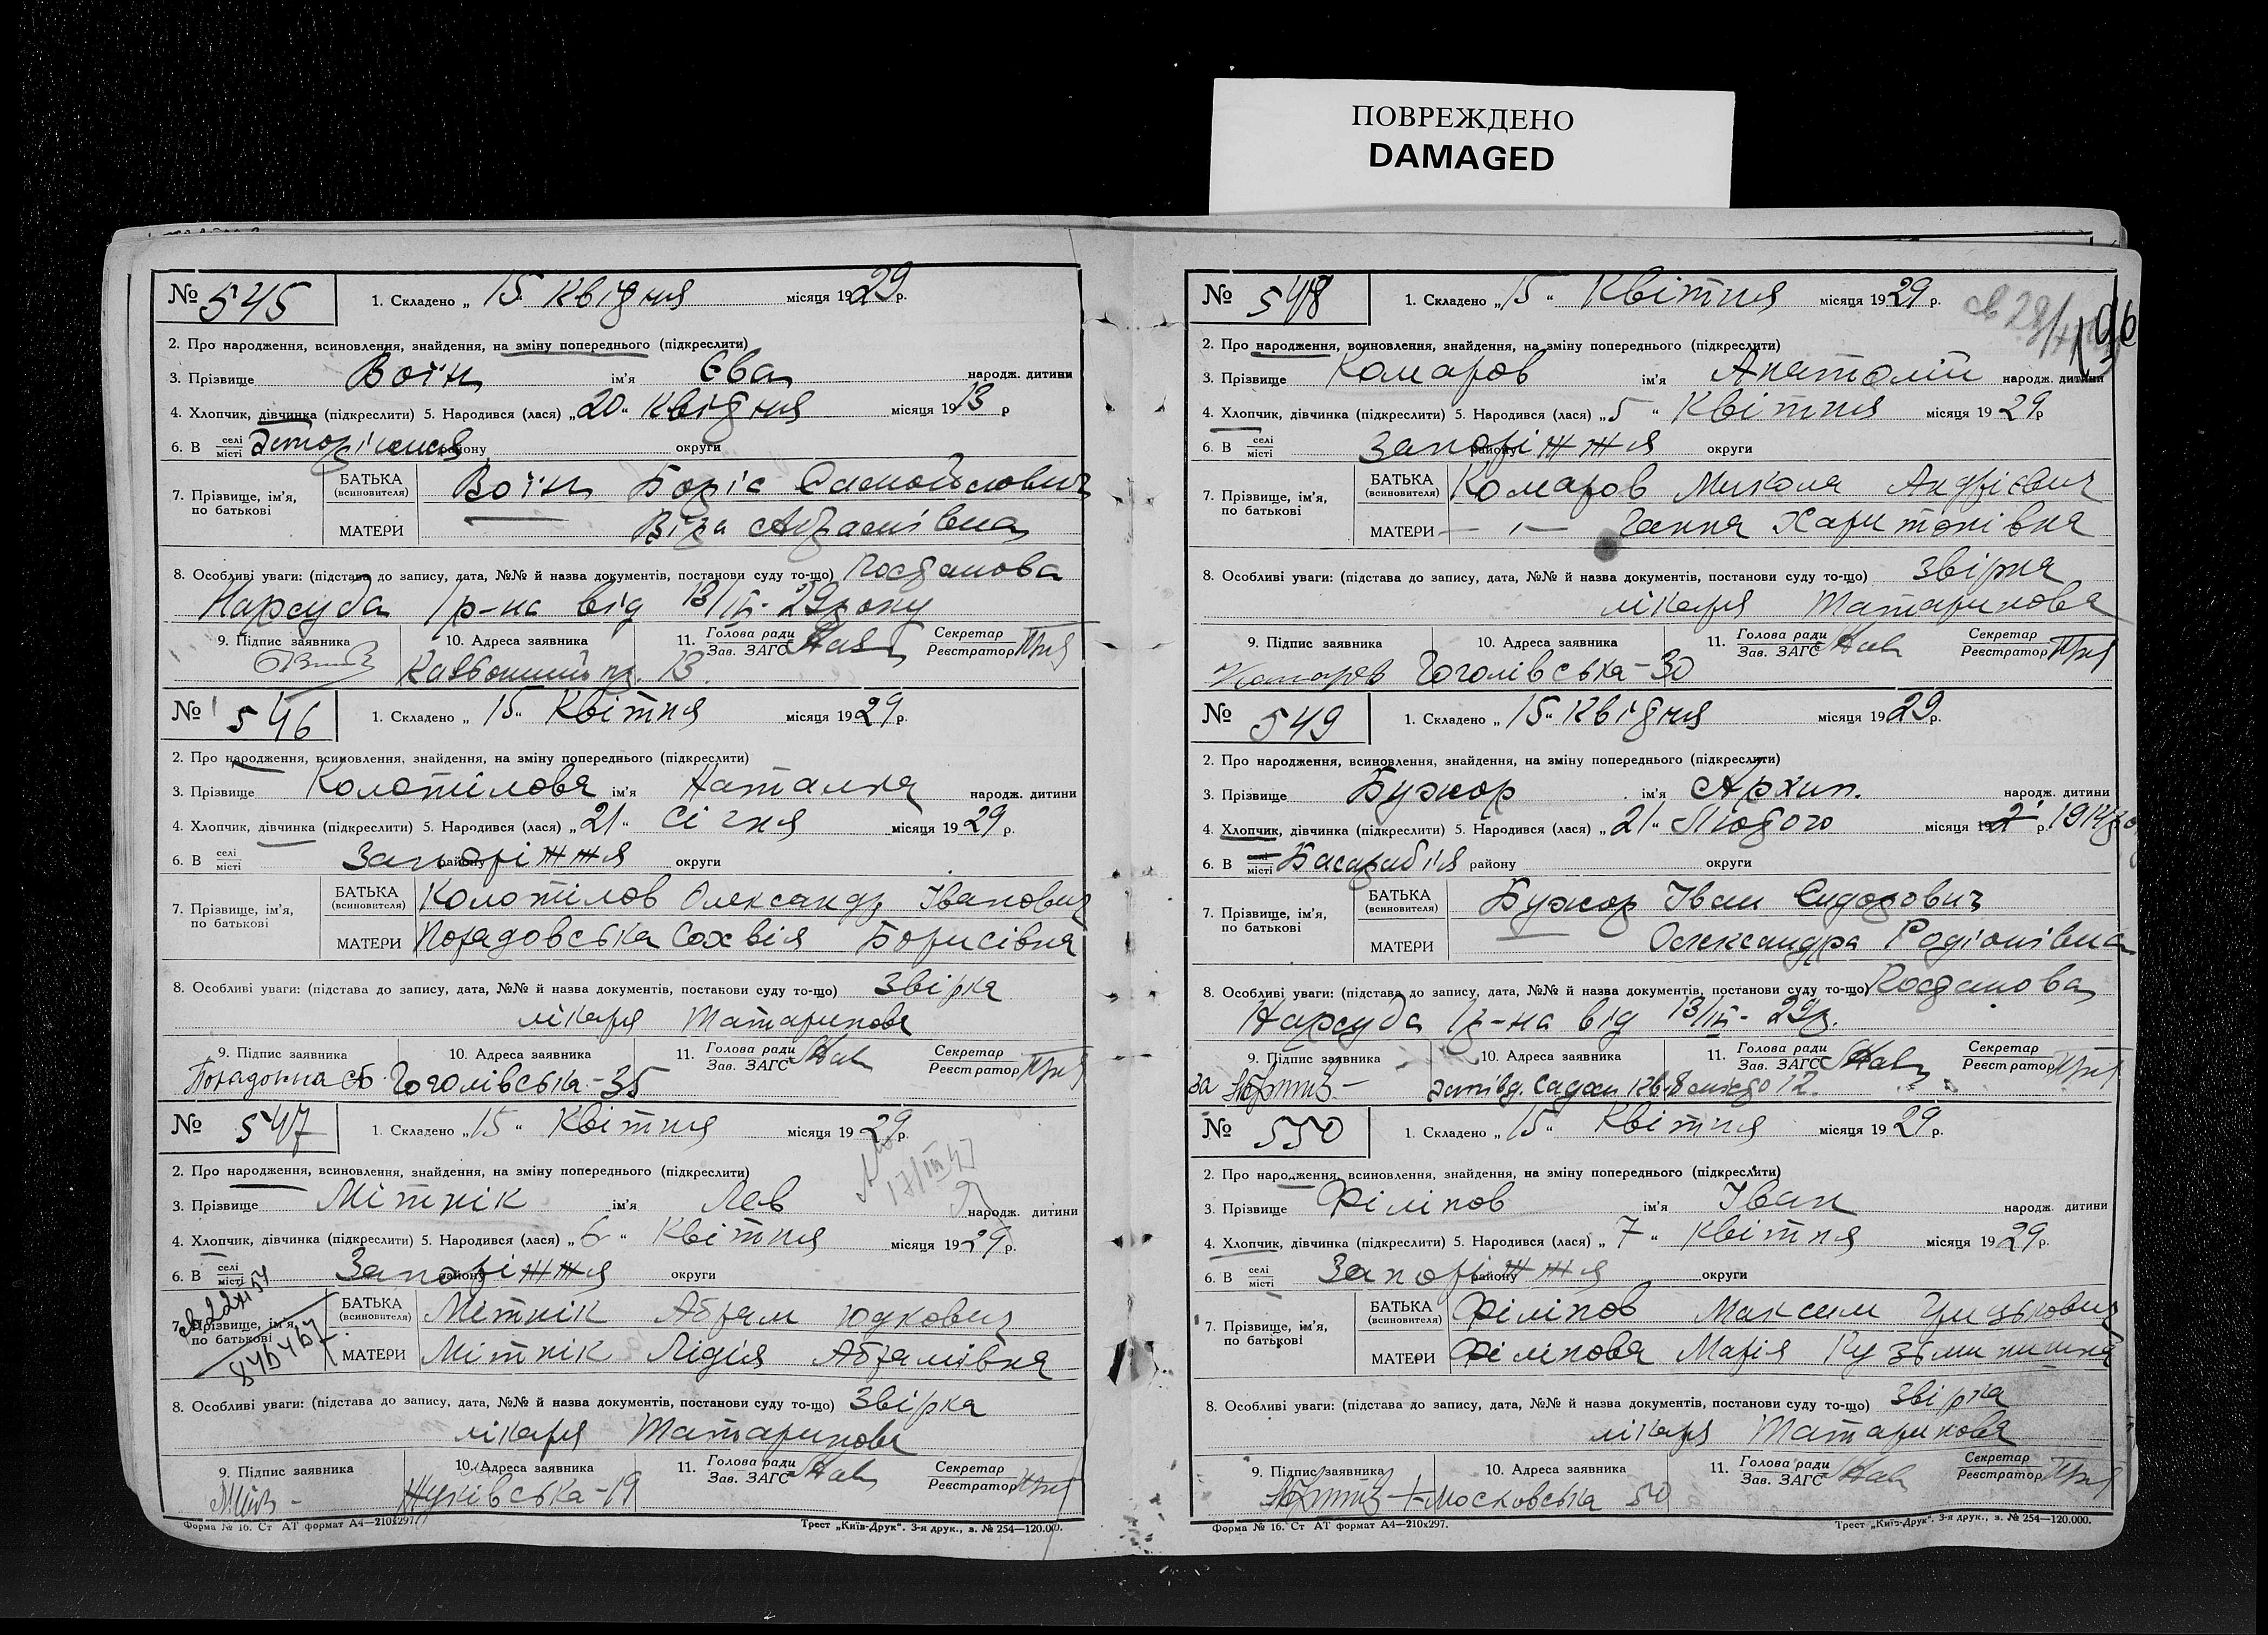 ПОВРЕЖДЕНО
DAMAGED
№ 545
1. Складено „ 15 Квітня місяця 1929 р.
2. Про народження, всиновлення, знайдення, на зміну попереднього (підкреслити)
3. Прізвище Воїн ім'я Єва народж. дитини
4. Хлопчик, дівчинка (підкреслити) 5. Народився (лася) „20“ Квітня місяця 1913 р
6. В селі місті району округи
7. Прізвище, ім'я, по батькові
БАТЬКА (всиновителя) Воїн Боріс Самойлович
МАТЕРИ — Віра Абрамівна
8. Особливі уваги: (підстава до запису, дата, №№ й назва документів, постанови суду то-що) Постанова
Нарсуда 1 р-на від 13/IV-29 року
9. Підпис заявника 10. Адреса заявника 11. Голова ради Зав. ЗАГС Секретар Реєстратор
13.
№ 546
1. Складено „ 15“ Квітня місяця 1929 р.
2. Про народження, всиновлення, знайдення, на зміну попереднього (підкреслити)
3. Прізвище Колотілова ім'я Наталка народж. дитини
4. Хлопчик, дівчинка (підкреслити) 5. Народився (лася) „21“ Січня місяця 1929 р.
6. В селі місті Запоріжжя району округи
7. Прізвище, ім'я, по батькові
БАТЬКА (всиновителя) Колотілов Олександр Іванович
МАТЕРИ Порадовська Сохвія Борисівна
8. Особливі уваги: (підстава до запису, дата, №№ й назва документів, постанови суду то-що) Звірка
лікаря Татаринова
9. Підпис заявника 10. Адреса заявника 11. Голова ради Зав. ЗАГС Секретар Реєстратор
Гоголівська-35
№ 547
1. Складено „15“ Квітня місяця 1929 р.
2. Про народження, всиновлення, знайдення, на зміну попереднього (підкреслити)
17/III 47
3. Прізвище Мітнік ім'я Лев народж. дитини
4. Хлопчик, дівчинка (підкреслити) 5. Народився (лася) „6“ Квітня місяця 1929 р.
6. В селі місті Запоріжжя району округи
7. Прізвище, ім'я, по батькові
БАТЬКА (всиновителя) Мітнік Абрам Юдкович
МАТЕРИ Мітнік Лідія Абрамівна
8. Особливі уваги: (підстава до запису, дата, №№ й назва документів, постанови суду то-що) Звірка
лікаря Татаринова
9. Підпис заявника 10. Адреса заявника 11. Голова ради Зав. ЗАГС Секретар Реєстратор
Жуківська-19
Форма № 16. Ст АТ формат А4—210х297. Трест „Київ-Друк“. 3-я друк., з. № 254—120.000.
№ 548
1. Складено „15“ Квітня місяця 1929 р.
2. Про народження, всиновлення, знайдення, на зміну попереднього (підкреслити)
3. Прізвище Комаров ім'я Анатолій народж. дитини
4. Хлопчик, дівчинка (підкреслити) 5. Народився (лася) „5“ Квітня місяця 1929 р
6. В селі місті Запоріжжя району округи
7. Прізвище, ім'я, по батькові
БАТЬКА (всиновителя) Комаров Микола Андрієвич
МАТЕРИ — ı — Ганна Харитонівна
8. Особливі уваги: (підстава до запису, дата, №№ й назва документів, постанови суду то-що) звірка
лікаря Татаринова
9. Підпис заявника 10. Адреса заявника 11. Голова ради Зав. ЗАГС Секретар Реєстратор
Комаров Гоголівська-30
№ 549
1. Складено „15“ Квітня місяця 1929 р.
2. Про народження, всиновлення, знайдення, на зміну попереднього (підкреслити)
3. Прізвище Бужор ім'я Архип. народж. дитини
4. Хлопчик, дівчинка (підкреслити) 5. Народився (лася) „21“ Лютого місяця р. 1914
6. В селі місті Басарабія району округи
7. Прізвище, ім'я, по батькові
БАТЬКА (всиновителя) Бужор Іван Сидорович
МАТЕРИ — Олександра Родіонівна
8. Особливі уваги: (підстава до запису, дата, №№ й назва документів, постанови суду то-що) Постанова
Нарсуда 1 р-на від 13/IV-29 р.
9. Підпис заявника 10. Адреса заявника 11. Голова ради Зав. ЗАГС Секретар Реєстратор
за
№ 550
1. Складено „15“ Квітня місяця 1929 р.
2. Про народження, всиновлення, знайдення, на зміну попереднього (підкреслити)
3. Прізвище Філіпов ім'я Іван народж. дитини
4. Хлопчик, дівчинка (підкреслити) 5. Народився (лася) „7“ Квітня місяця 1929 р.
6. В селі місті Запоріжжя району округи
7. Прізвище, ім'я, по батькові
БАТЬКА (всиновителя) Філіпов Максим
МАТЕРИ Філіпова Марія Кузьминишна
8. Особливі уваги: (підстава до запису, дата, №№ й назва документів, постанови суду то-що) звірка
лікаря Татаринова
9. Підпис заявника 10. Адреса заявника 11. Голова ради Зав. ЗАГС Секретар Реєстратор
Московська 50
Форма № 16. Ст АТ формат А4—210х297. Трест „Київ-Друк“. 3-я друк., з. № 254—120.000.